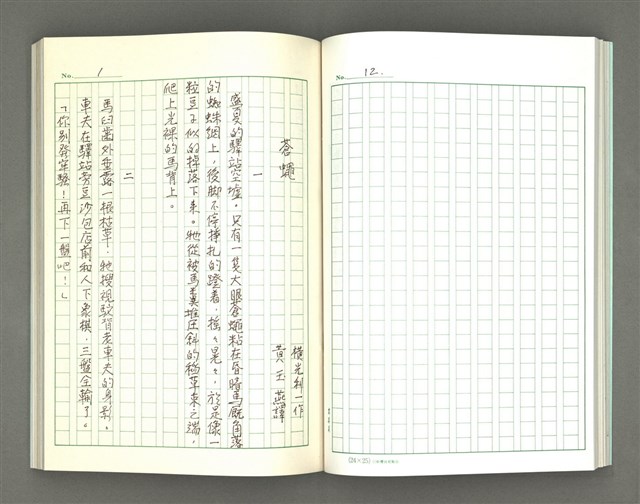 No. 1
蒼蠅
橫光利一作
黃玉燕譯
一
盛夏的驛站空墟。只有一隻大眼蒼蠅粘在昏暗馬厩角落
的蜘蛛網上，後脚不停掙扎的蹬着，搖々晃々，於是像一
粒豆子似的掉落下來。牠從被馬糞堆压斜的稻草束之端，
爬上光裸的馬背上。
二
馬臼齒外垂露一根枯草！牠搜視駝背老車夫的身影。
車夫在驛站旁豆沙包店前和人下象棋，三盤全輸了。
「你別發牢騷！再下一盤吧！」
No. 12.
(24×25)